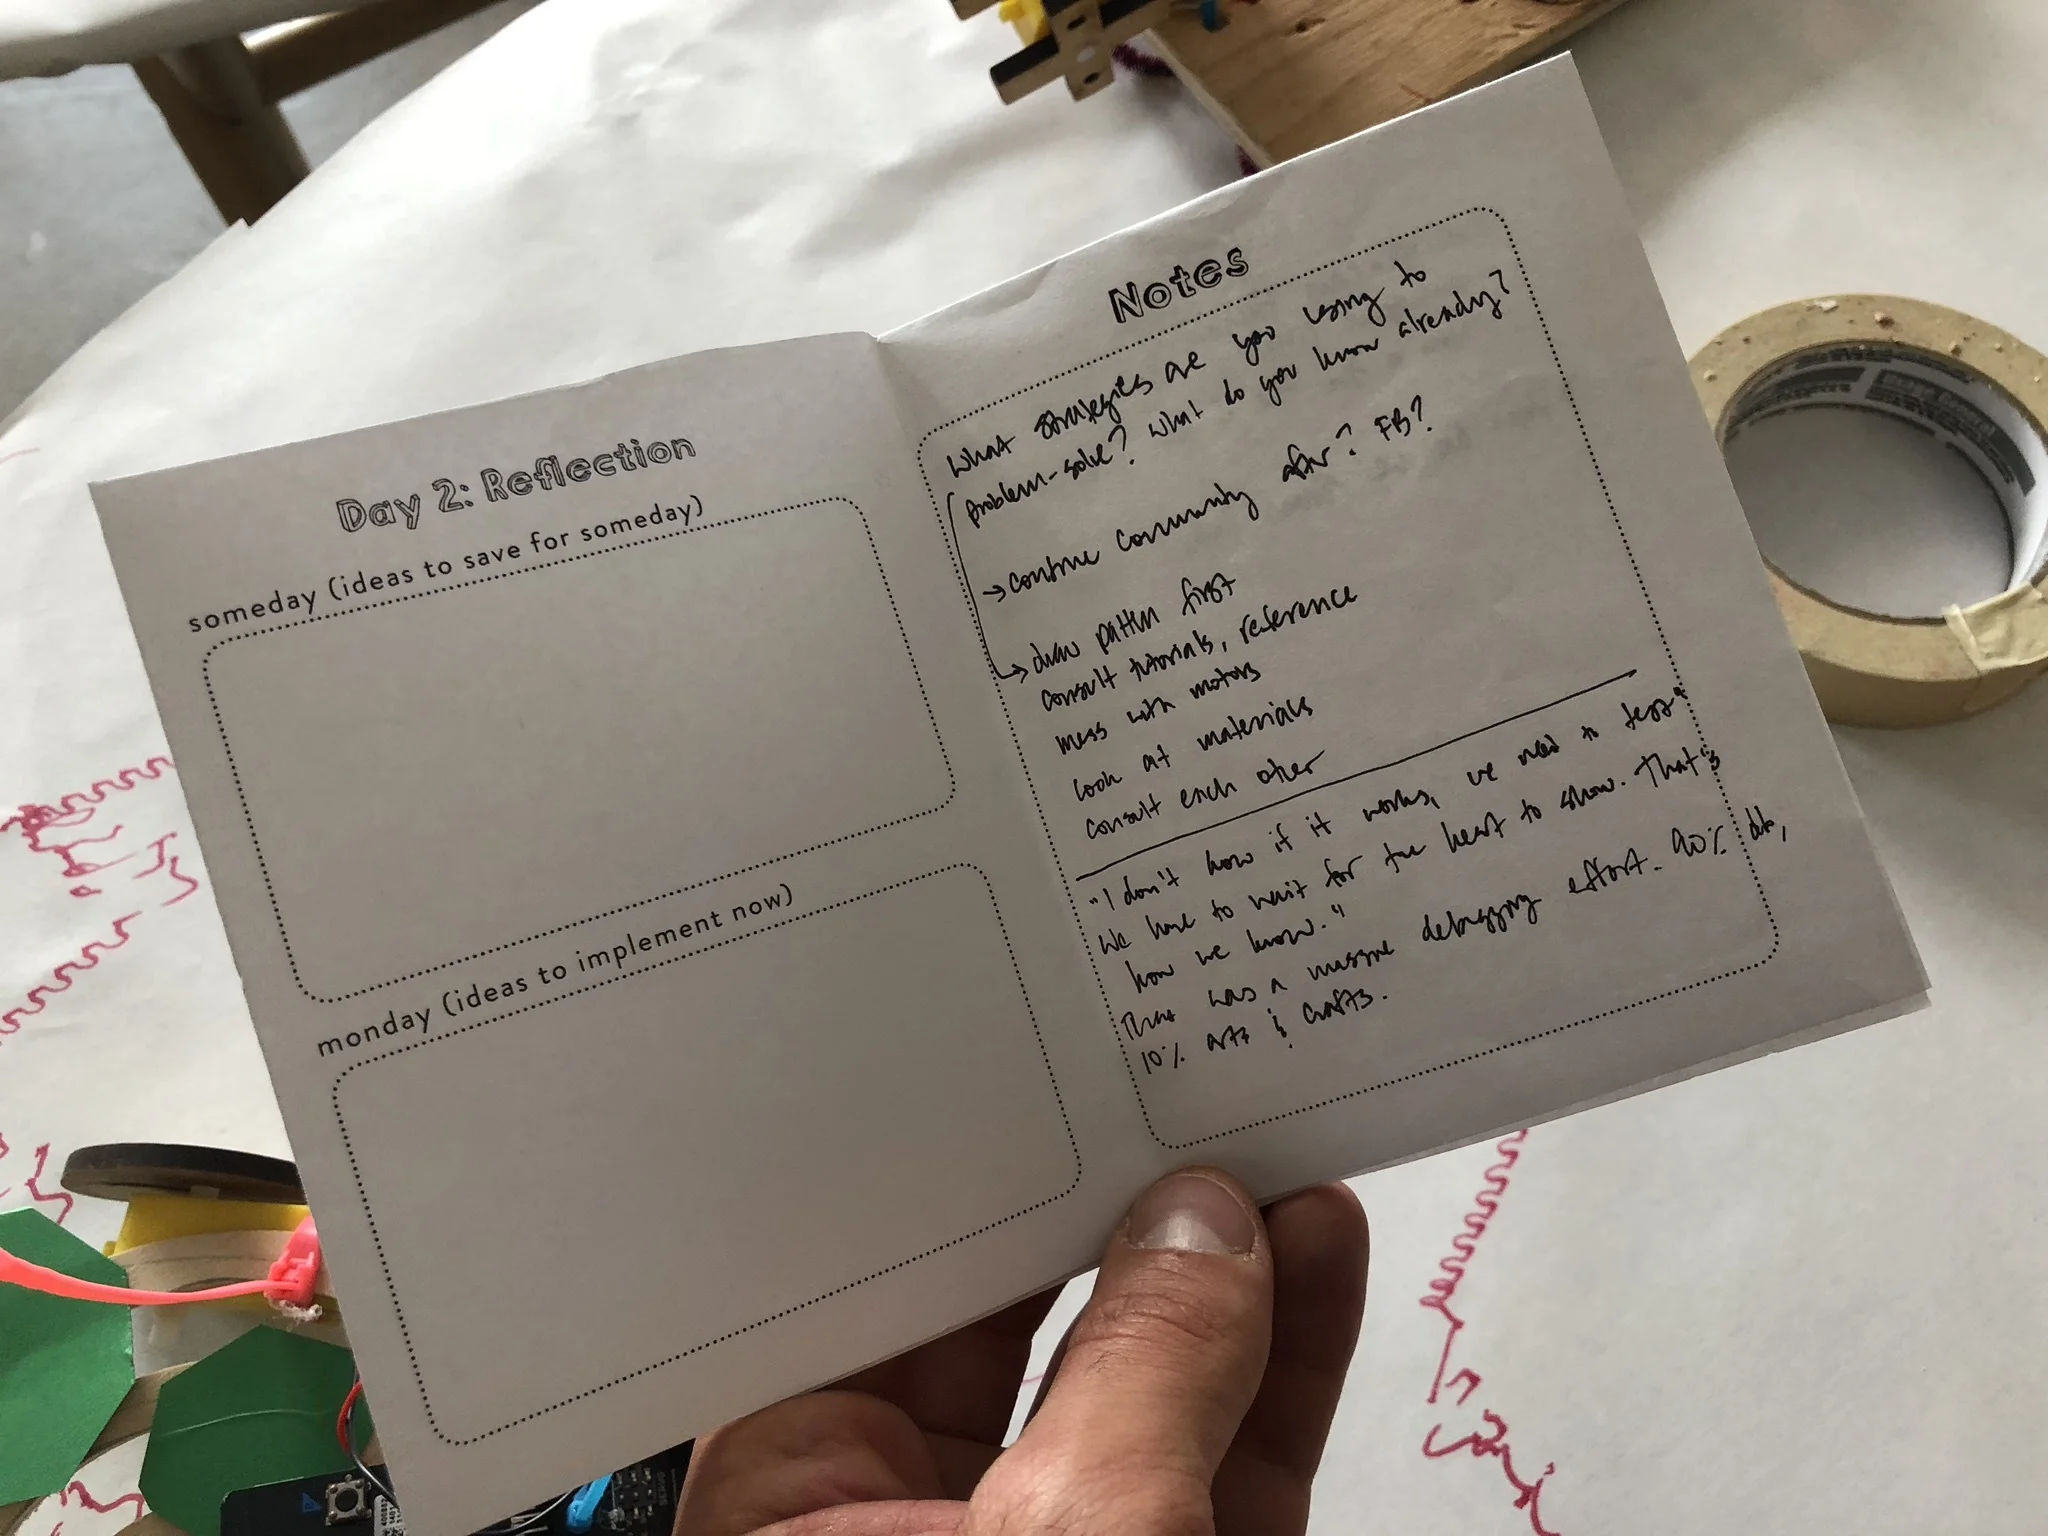 Day 2: Reflection
someday (ideas to save for someday)
monday (ideas to implement now)
Notes
What strategies are you using to
problem-solve? What do you know already?
→ continue community after? FB?
→ draw pattern first
consult tutorials, reference
mess with motors
look at materials
consult each other
"I don't know if it works, we need to test"
We have to wait for the heart to show. That's
how we know."
That was a massive debugging effort. 90%
10% arts & crafts.